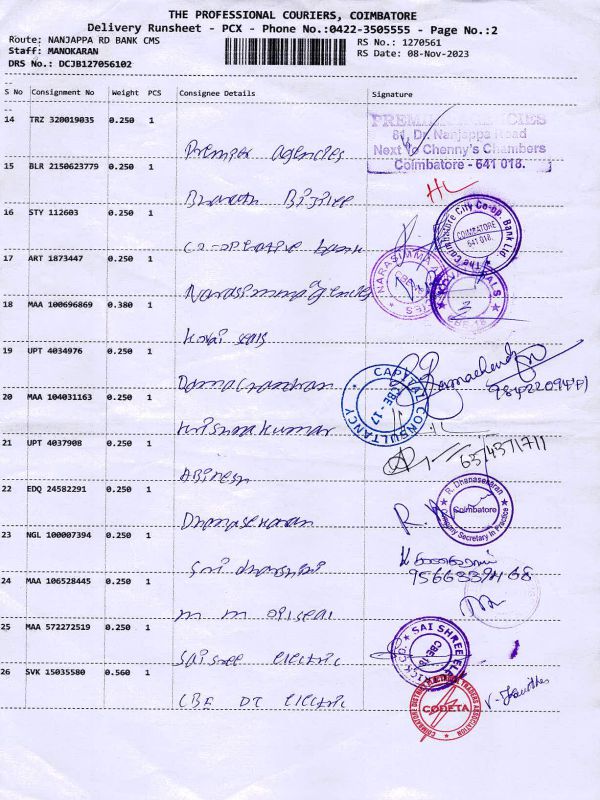 THE PROFESSIONAL COURIERS, COIMBATORE
Delivery Runsheet - PCX - Phone No.:0422-3505555 - Page No.:2
Route: NANJAPPA RD BANK CMS
RS No.: 1270561
Staff: MANOKARAN
RS Date: 08-Nov-2023
DRS No.: DCJB127056102
S No Consignment No Weight PCS Consignee Details Signature
14 TRZ 320019035 0.250 1
PREMIER AGENCIES
81, Dr. Nanjappa Road
Next to Chenny's Chambers
Coimbatore - 641 018.
Premier agencies
15 BLR 2150623779 0.250 1
Bharath Bijlee
16 STY 112603 0.250 1
The Coimbatore City Co-op. Bank Ltd.
COIMBATORE
641 018.
Co-operative bank
17 ART 1873447 0.250 1
NARASIMMA AGENCIES
Narasimma agencies
18 MAA 100696869 0.380 1
Kovai seals
19 UPT 4034976 0.250 1
Ramachandran
20 MAA 104031163 0.250 1
CAPITAL CONSULTANCY
CBE - 17
Krishnakumar
21 UPT 4037908 0.250 1
6374371711
Abinesh
22 EDQ 24582291 0.250 1
R. Dhanasekaran
Coimbatore
Company Secretary in Practice
Dhanasekaran
23 NGL 100007394 0.250 1
Sri dharshini
9566339468
24 MAA 106528445 0.250 1
m m
25 MAA 572272519 0.250 1
SAI SHREE
CBE-18
Saisree electric
26 SVK 15035580 0.560 1
CODETA
CBE DT electric